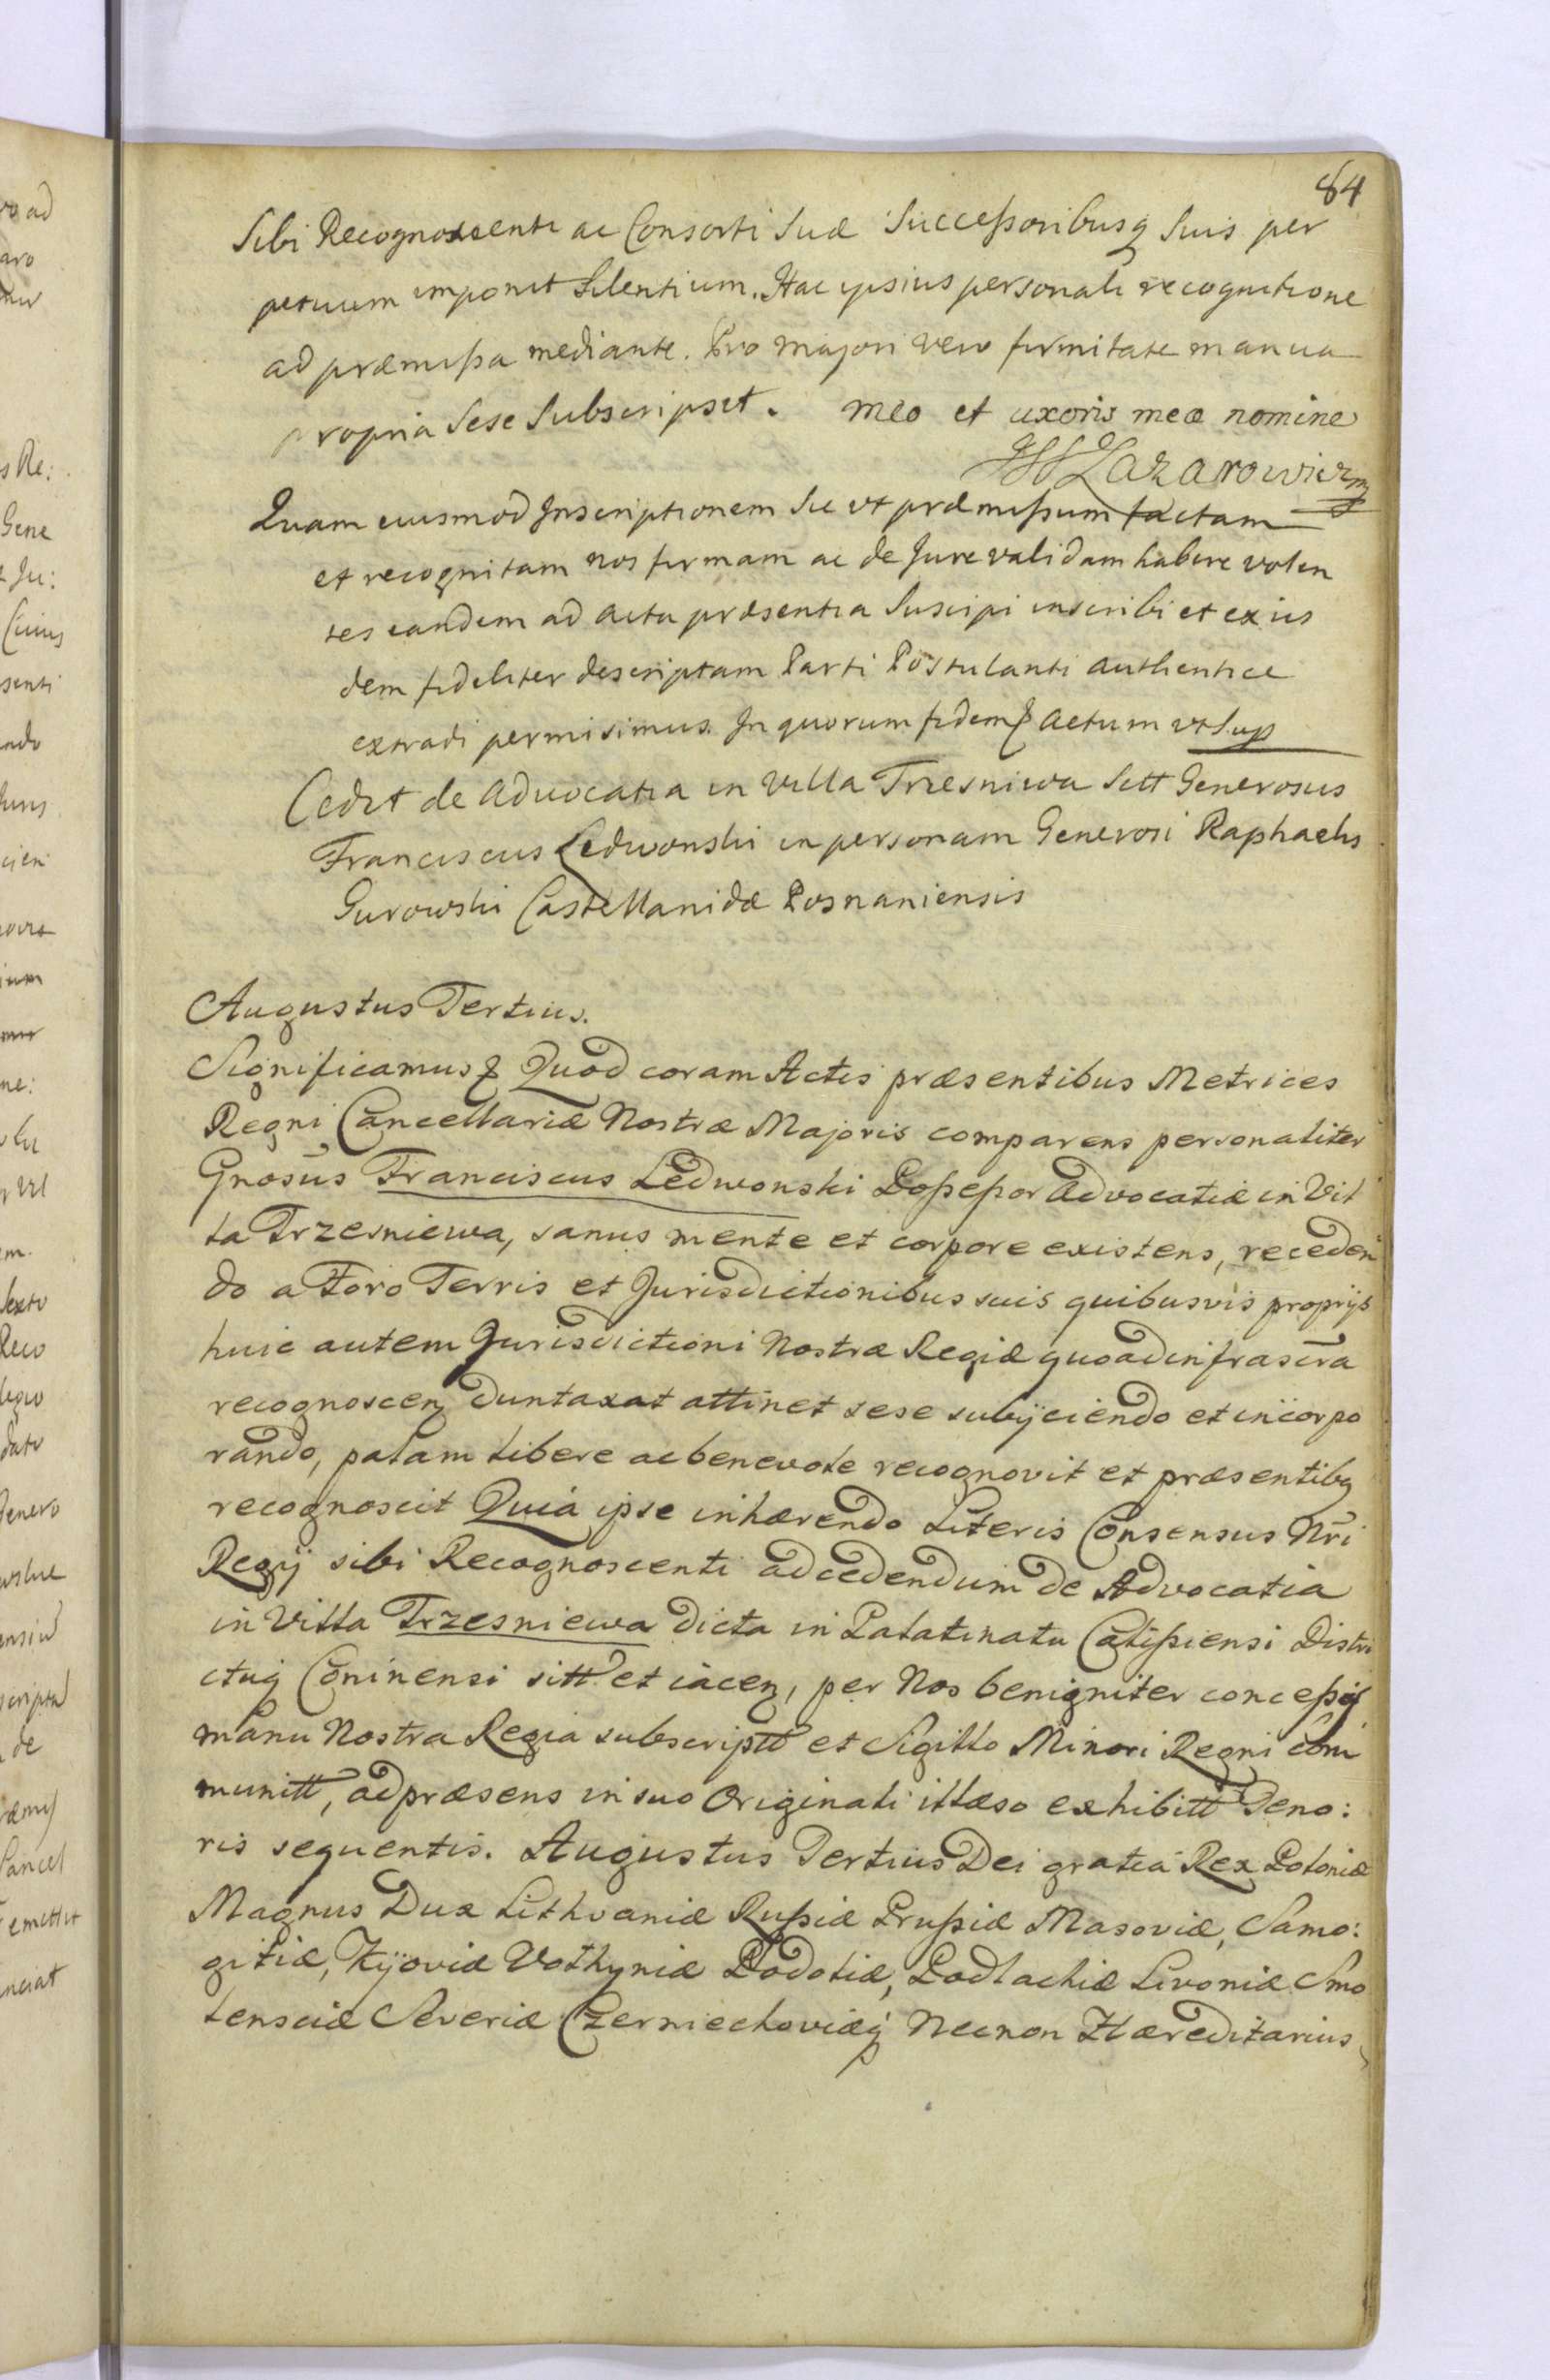 84
Sibi Recognoscenti ac Consorti Suæ Successoribusq Suis per
petuum imponit Silentium. Hac ipsius personali recognitione
ad præmissa mediante. Pro majori vero firmitate manu
propria Sese Subscripsit. meo et uxoris meæ nomine
Lazarowicz
Quam eiusmod Inscriptionem Sic vt præmissum factam
et recognitam nos firmam ac de Jure validam habere volen
tes eandem ad acta præsentia Suscipi inscribi et ex iis
dem fideliter descriptam Parti Postulanti authentice
extradi permisimus. In quorum fidem Actum vt Sup
Cedit de advocatia in Villa Trzesniewa Sitt Generosus
Franciscus Ledwonski in personam Generosi Raphaelis
Gurowski Castellanidæ Posnaniensis
Augustus Tertius.
Significamus Quod coram Actis præsentibus Metrices
Regni Cancellariæ Nostræ Majoris comparens personaliter
Gnosus Franciscus Ledwonski Possessor advocatiæ in Vil
la Trzesniewa, sanus mente et corpore existens, receden
do a Foro Terris et Jurisdictionibus suis quibusvis proprijs
huic autem Jurisdictioni Nostræ Regiæ quoad infrascra
recognoscen duntaxat attinet sese subijciendo et incorpo
rando, palam libere ac benevole recognovit et præsentibq
recognoscit Quia ipse inhærendo Literis Consensus Nri
Regij sibi Recognoscenti ad cedendum de Advocatia
in Villa Trzesniewa dicta in Palatinatu Calissiensi Distri
ctuq Coninensi sitt et iacen, per Nos benigniter concessis
manu Nostra Regia subscriptt et Sigillo Minori Regni com
munitt, ad præsens in suo Originali illæso exhibitt Teno:
ris sequentis. Augustus Tertius Dei gratia Rex Poloniæ
Magnus Dux Lithvaniæ Russiæ Prussiæ Masoviæ, Samo:
gitiæ, Kijoviæ Volhyniæ Podoliæ, Podlachiæ Livoniæ Smo
lensciæ Severiæ Czerniechoviæq Necnon Hæreditarius